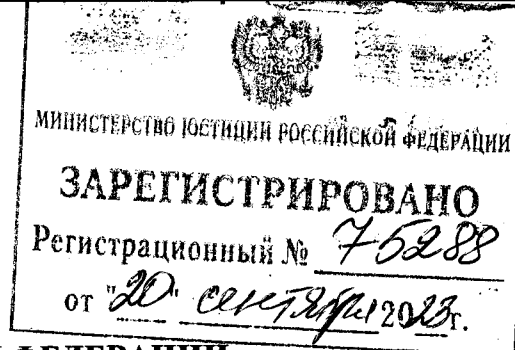 МИНИСТЕРСТВО ЮСТИЦИИ РОССИЙСКОЙ ФЕДЕРАЦИИ
ЗАРЕГИСТРИРОВАНО
Регистрационный № 75288
от "20" сентября 2023г.
ФЕДЕРАЦИИ